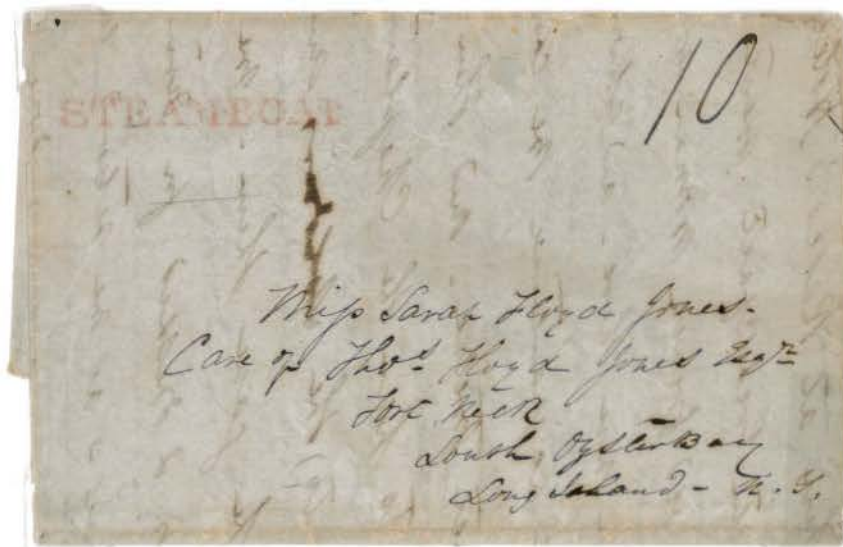 STEAMBOAT
10
Miss Sarah Floyd Jones.
Care of Thos. Floyd Jones Esqr.
Fort Neck
South Oysterbay
Long Island - N. Y.